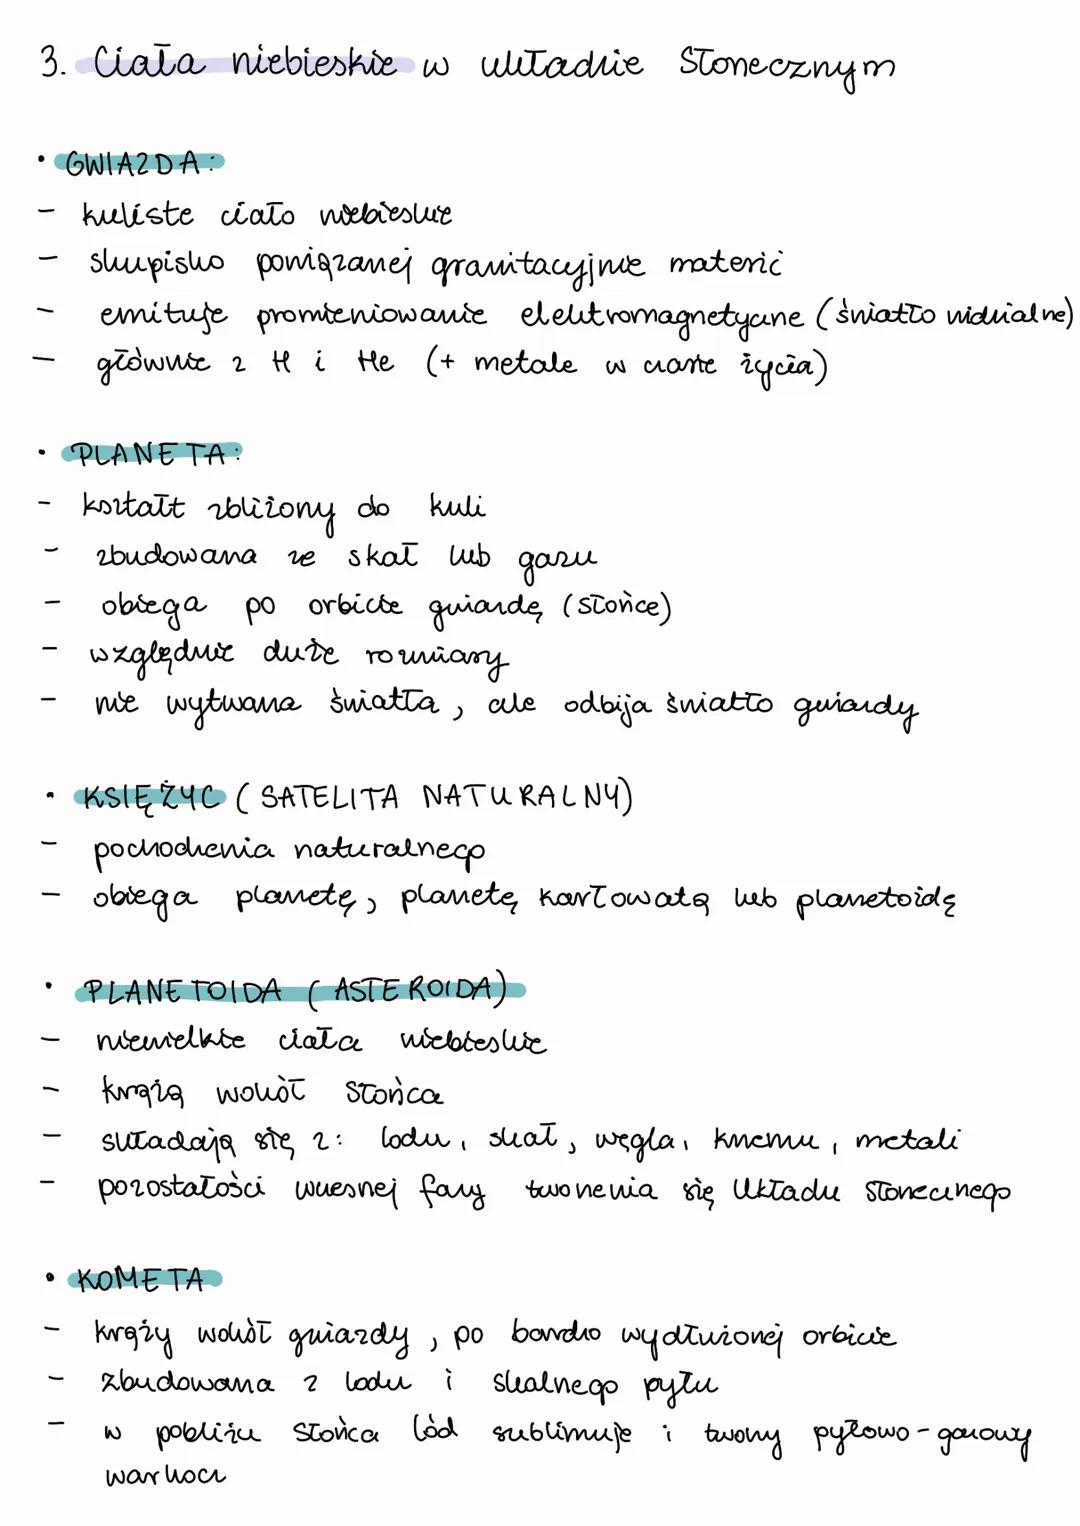 3. Ciała niebieskie w układzie Słonecznym
• GWIAZDA:
- kuliste ciało niebieskie
- skupisko powiązanej grawitacyjnie materii
- emituje promieniowanie elektromagnetyczne (światło widzialne)
- głównie z H i He (+ metale w czasie życia)
• PLANETA:
- kształt zbliżony do kuli
- zbudowana ze skał lub gazu
- obiega po orbicie gwiazdę (Słońce)
- względnie duże rozmiary
- nie wytwarza światła, ale odbija światło gwiazdy
• KSIĘŻYC (SATELITA NATURALNY)
- pochodzenia naturalnego
- obiega planetę, planetę karłowatą lub planetoidę
• PLANETOIDA (ASTEROIDA)
- niewielkie ciała niebieskie
- krążą wokół Słońca
- składają się z: lodu, skał, węgla, krzemu, metali
- pozostałości wczesnej fazy tworzenia się Układu Słonecznego
• KOMETA
- krąży wokół gwiazdy, po bardzo wydłużonej orbicie
- zbudowana z lodu i skalnego pyłu
- w pobliżu Słońca lód sublimuje i tworzy pyłowo-gazowy
warkocz